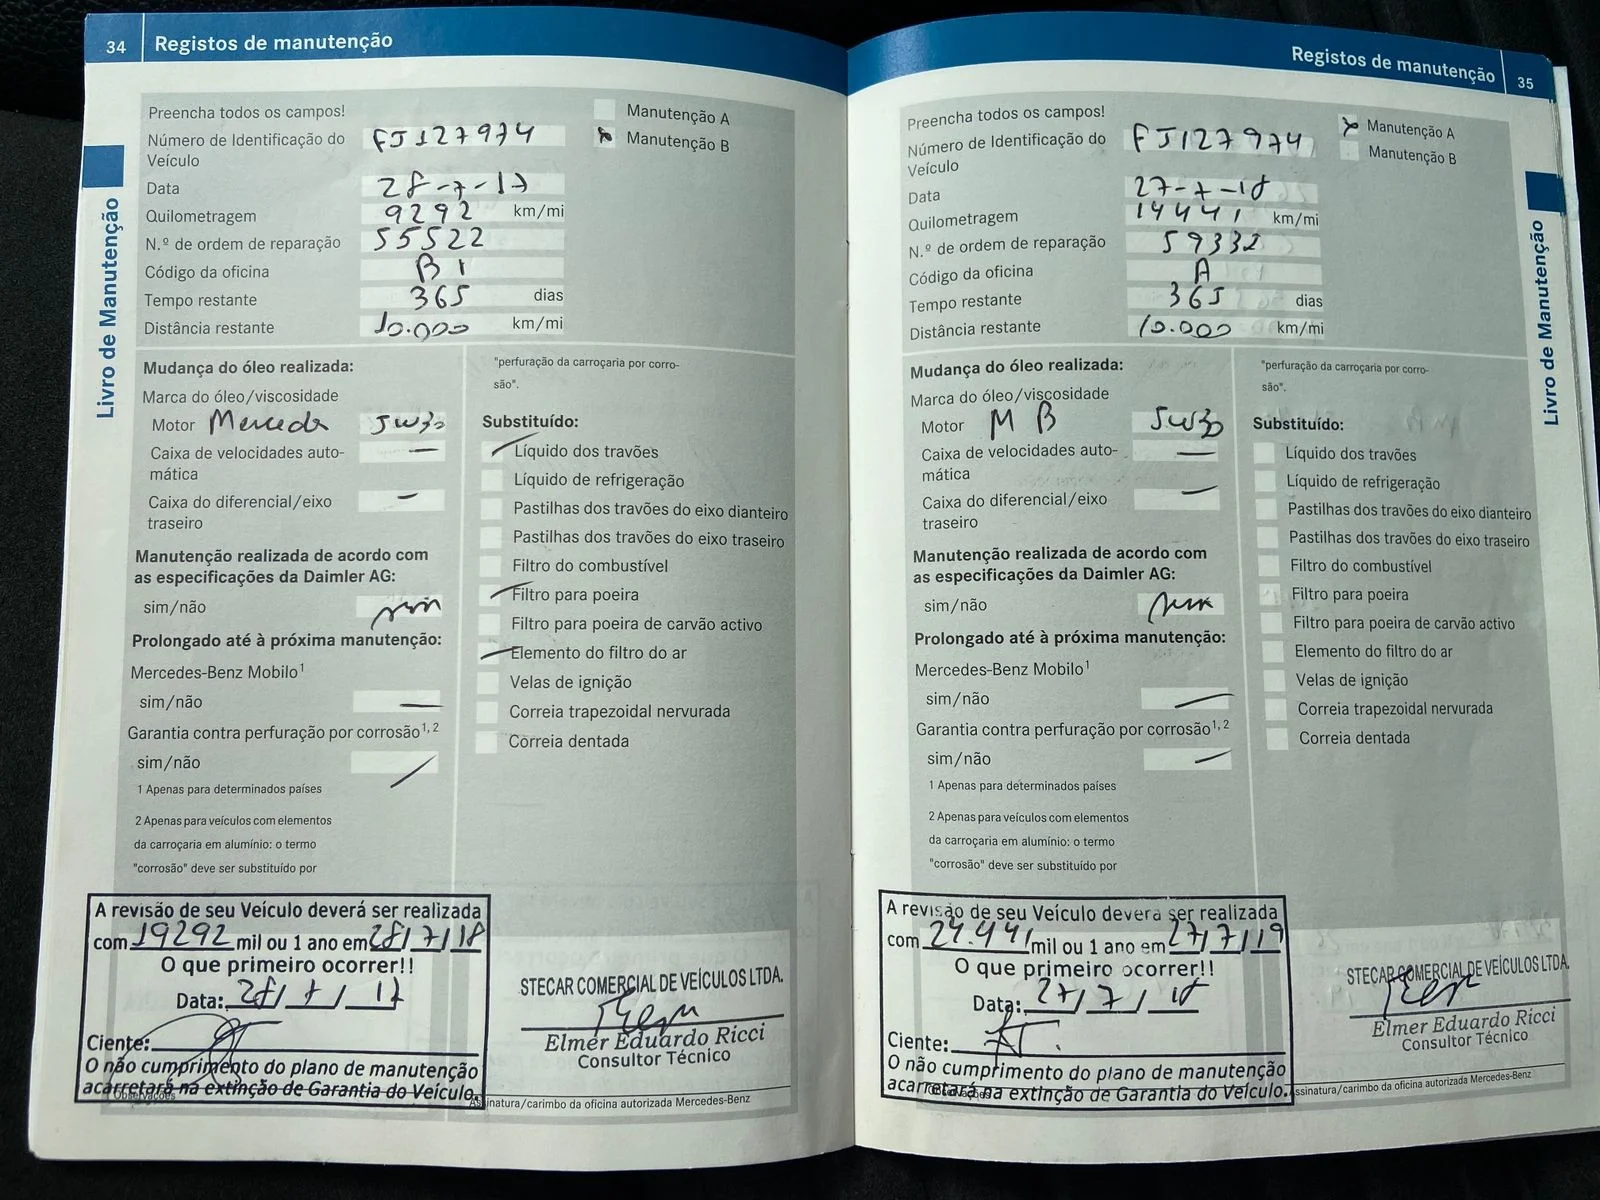 34 Registos de manutenção
Preencha todos os campos!
Manutenção A
Número de Identificação do Veículo FJ127974
Manutenção B
Data 28-7-17
Quilometragem 9292 km/mi
N.º de ordem de reparação 55522
Código da oficina B1
Tempo restante 365 dias
Distância restante 10.000 km/mi
Livro de Manutenção
Mudança do óleo realizada:
Marca do óleo/viscosidade
Motor Mercedes 5W30
Caixa de velocidades auto-
mática
Caixa do diferencial/eixo
traseiro
Manutenção realizada de acordo com
as especificações da Daimler AG:
sim/não sim
Prolongado até à próxima manutenção:
Mercedes-Benz Mobilo1
sim/não
Garantia contra perfuração por corrosão1, 2
sim/não
1 Apenas para determinados países
2 Apenas para veículos com elementos
da carroçaria em alumínio: o termo
"corrosão" deve ser substituído por
"perfuração da carroçaria por corro-
são".
Substituído:
Líquido dos travões
Líquido de refrigeração
Pastilhas dos travões do eixo dianteiro
Pastilhas dos travões do eixo traseiro
Filtro do combustível
Filtro para poeira
Filtro para poeira de carvão activo
Elemento do filtro do ar
Velas de ignição
Correia trapezoidal nervurada
Correia dentada
A revisão de seu Veículo deverá ser realizada
com 19292 mil ou 1 ano em 28/7/18
O que primeiro ocorrer!!
Data: 28/7/17
Ciente:
O não cumprimento do plano de manutenção
acarretará na extinção de Garantia do Veículo.
Observações
STECAR COMERCIAL DE VEÍCULOS LTDA.
Elmer Eduardo Ricci
Consultor Técnico
Assinatura/carimbo da oficina autorizada Mercedes-Benz
Registos de manutenção 35
Preencha todos os campos!
Manutenção A
Número de Identificação do Veículo FJ127974
Manutenção B
Data 27-7-18
Quilometragem 14441 km/mi
N.º de ordem de reparação 59332
Código da oficina A
Tempo restante 365 dias
Distância restante 10.000 km/mi
Livro de Manutenção
Mudança do óleo realizada:
Marca do óleo/viscosidade
Motor MB 5W30
Caixa de velocidades auto-
mática
Caixa do diferencial/eixo
traseiro
Manutenção realizada de acordo com
as especificações da Daimler AG:
sim/não sim
Prolongado até à próxima manutenção:
Mercedes-Benz Mobilo1
sim/não
Garantia contra perfuração por corrosão1, 2
sim/não
1 Apenas para determinados países
2 Apenas para veículos com elementos
da carroçaria em alumínio: o termo
"corrosão" deve ser substituído por
"perfuração da carroçaria por corro-
são".
Substituído:
Líquido dos travões
Líquido de refrigeração
Pastilhas dos travões do eixo dianteiro
Pastilhas dos travões do eixo traseiro
Filtro do combustível
Filtro para poeira
Filtro para poeira de carvão activo
Elemento do filtro do ar
Velas de ignição
Correia trapezoidal nervurada
Correia dentada
A revisão de seu Veículo deverá ser realizada
com 24.441 mil ou 1 ano em 27/7/19
O que primeiro ocorrer!!
Data: 27/7/18
Ciente:
O não cumprimento do plano de manutenção
acarretará na extinção de Garantia do Veículo.
Observações
STECAR COMERCIAL DE VEÍCULOS LTDA.
Elmer Eduardo Ricci
Consultor Técnico
Assinatura/carimbo da oficina autorizada Mercedes-Benz